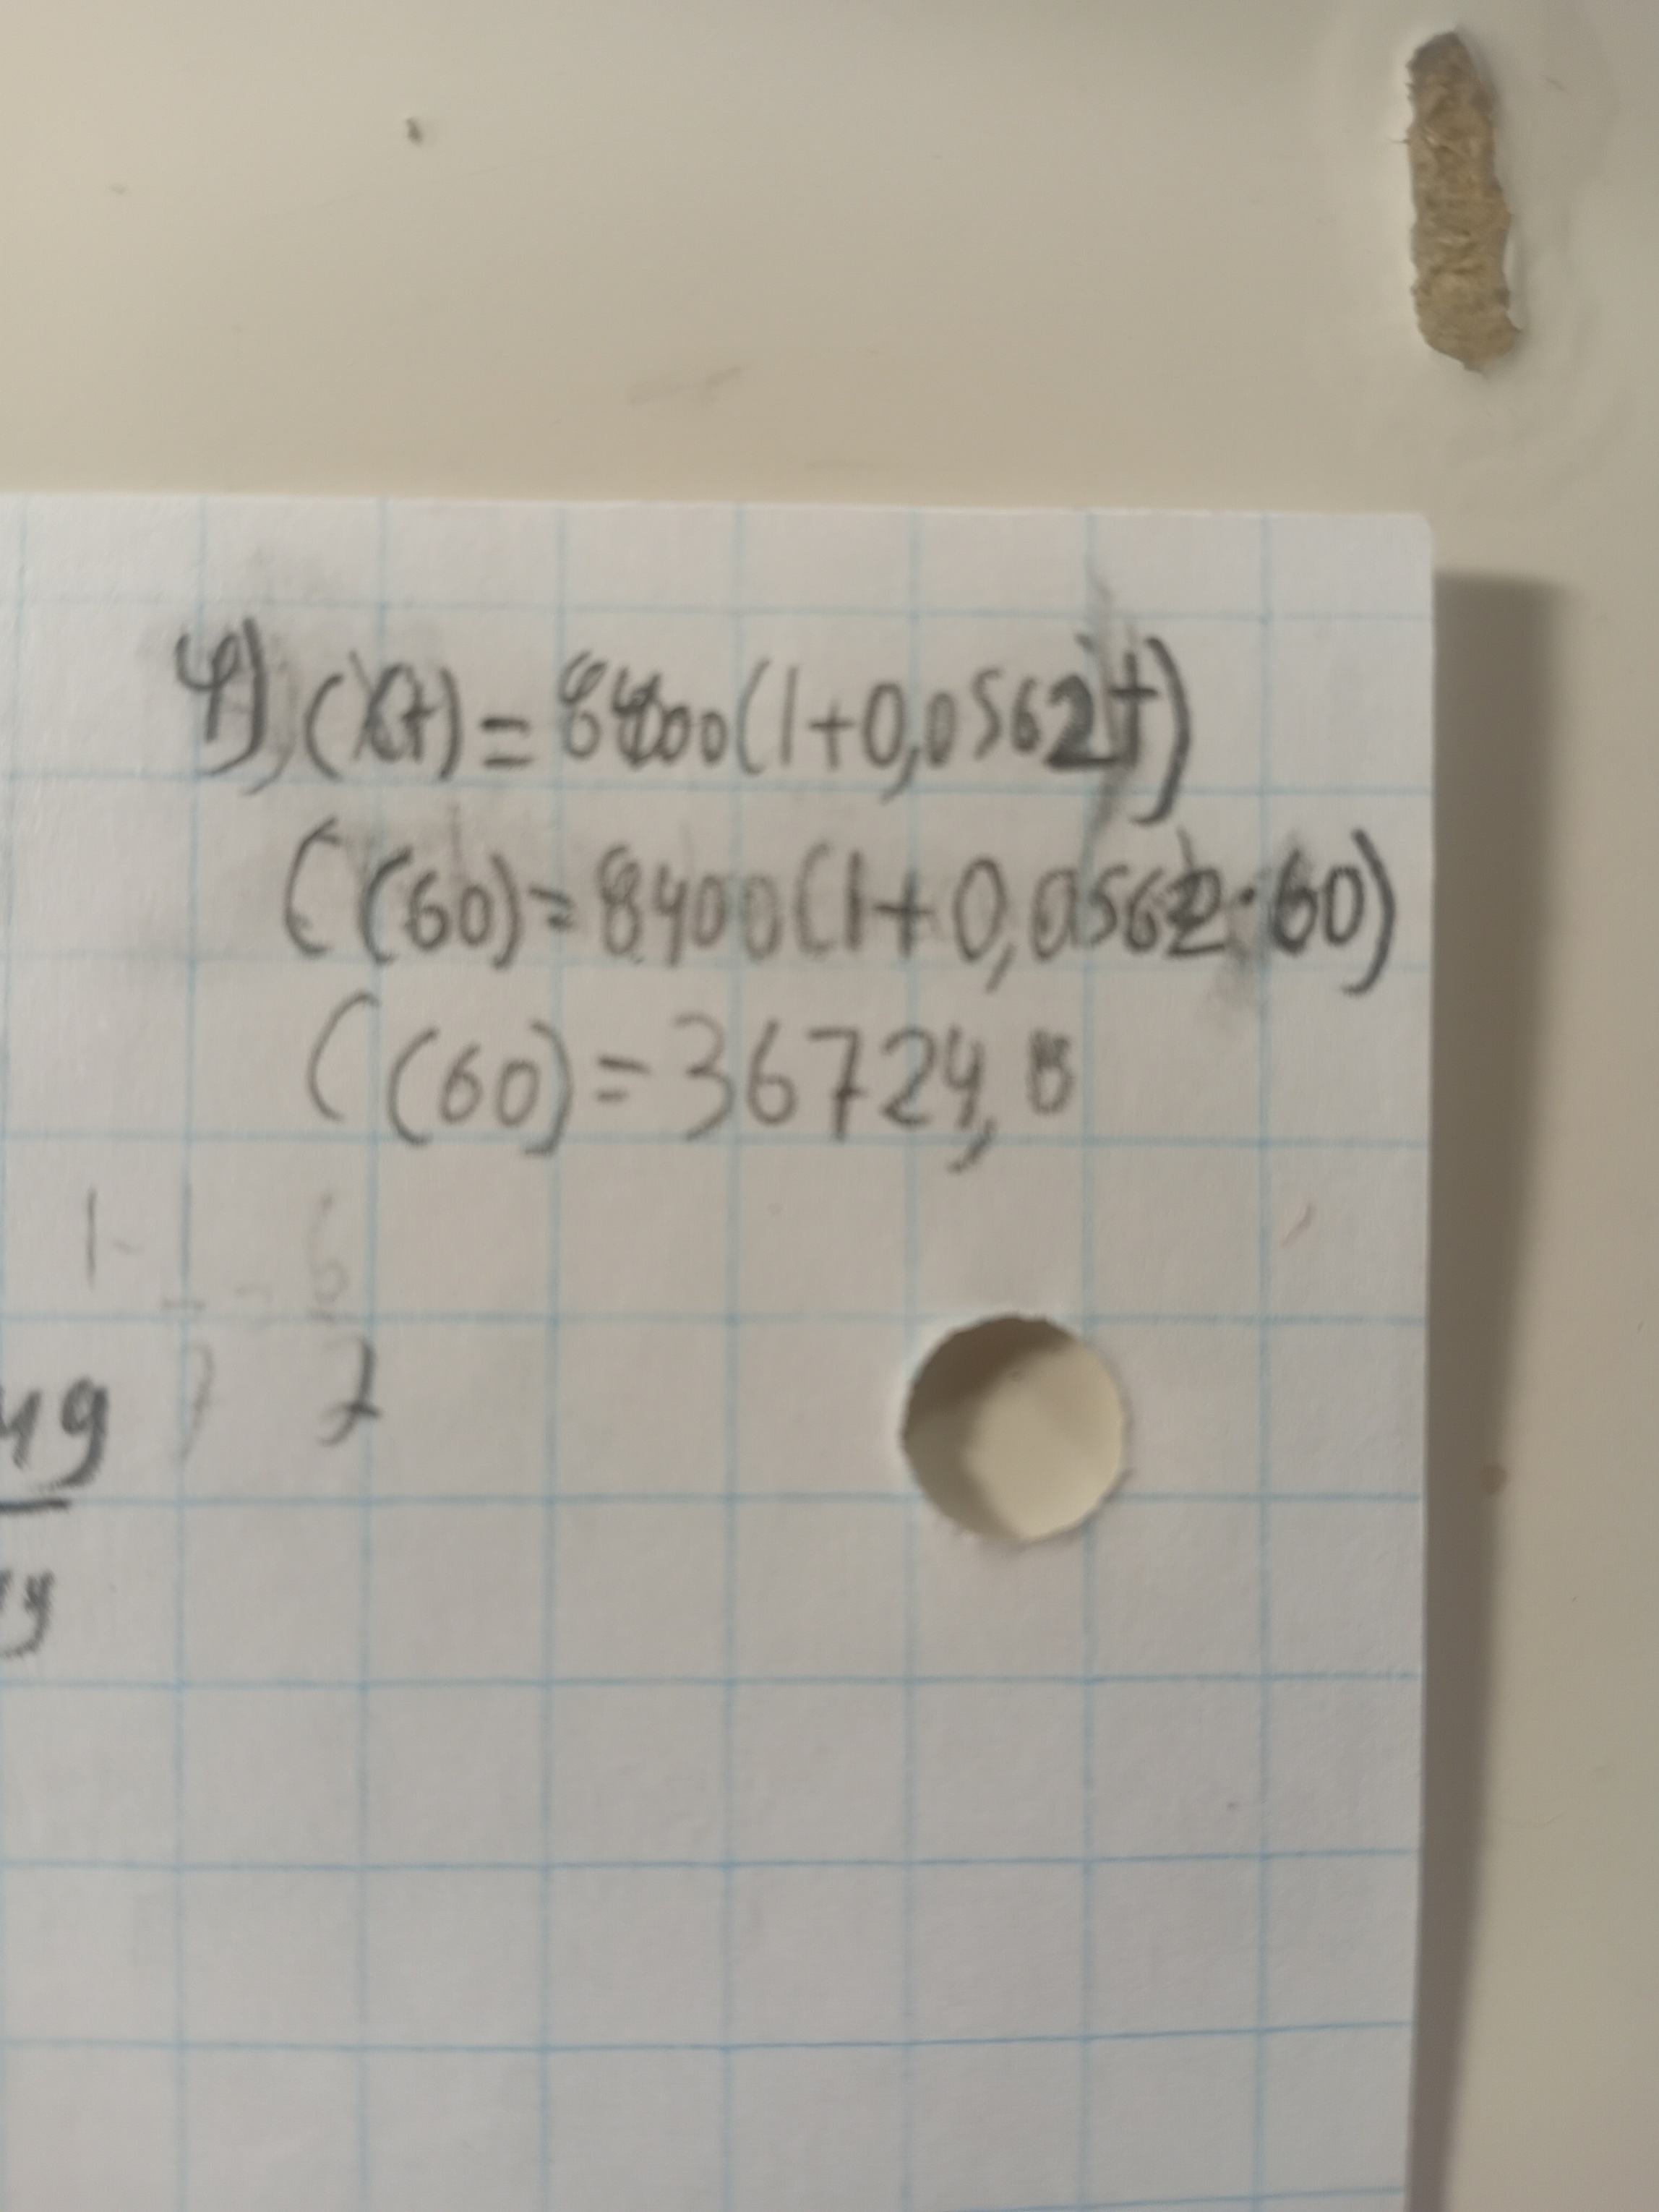 4) C(t)=8400(1+0,0562t)
C(60)=8400(1+0,0562·60)
C(60)=36724,8
1-1/7=6/7